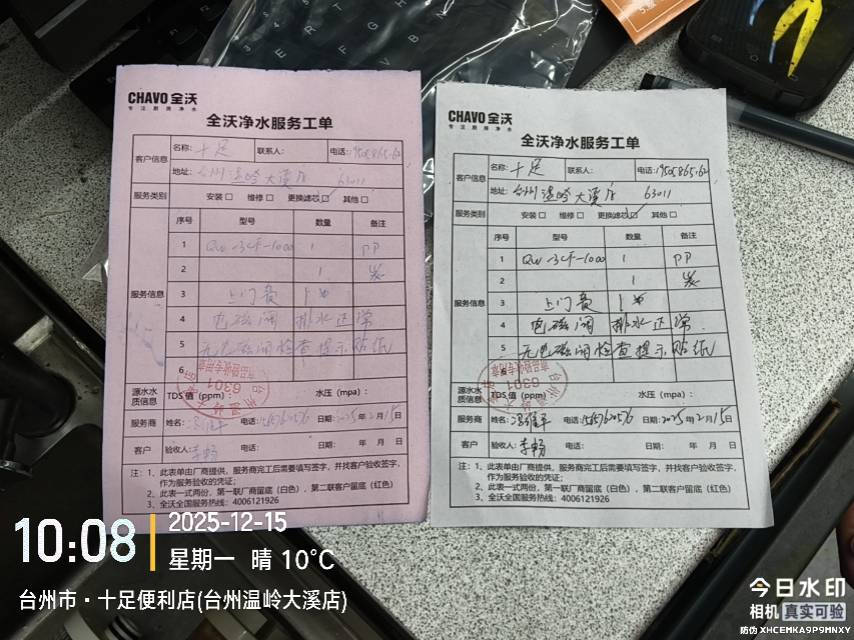 CHAVO 全沃
专注厨房净水
全沃净水服务工单
客户信息
名称: 十足
联系人:
电话:
地址: 台州温岭大溪店 63011
服务类别
安装 □ 维修 □ 更换滤芯 □ 其他 □
服务信息
序号 型号 数量 备注
1 QW-3CF-1000 1 PP
2 1 炭
3 上门费 1
4 电磁阀 排水正常
5 无电磁阀检查提示贴纸
6
源水水质信息
TDS值(ppm): 水压(mpa):
服务商
姓名: 电话: 日期: 2025年2月15日
客户
验收人: 李畅 电话: 日期: 年 月 日
注: 1、此表单由厂商提供,服务商完工后需要填写签字,并找客户验收签字,
作为服务验收的凭证;
2、此表一式两份,第一联厂商留底(白色),第二联客户留底(红色)
3、全沃全国服务热线: 4006121926
CHAVO 全沃
专注厨房净水
全沃净水服务工单
客户信息
名称: 十足
联系人:
电话:
地址: 台州温岭大溪店 63011
服务类别
安装 □ 维修 □ 更换滤芯 □ 其他 □
服务信息
序号 型号 数量 备注
1 QW-3CF-1000 1 PP
2 1 炭
3 上门费 1
4 电磁阀 排水正常
5 无电磁阀检查提示贴纸
6301
源水水质信息
TDS值(ppm): 水压(mpa):
服务商
姓名: 电话: 日期: 2025年2月15日
客户
验收人: 李畅 电话: 日期: 年 月 日
注: 1、此表单由厂商提供,服务商完工后需要填写签字,并找客户验收签字,
作为服务验收的凭证;
2、此表一式两份,第一联厂商留底(白色),第二联客户留底(红色)
3、全沃全国服务热线: 4006121926
10:08
2025-12-15
星期一 晴 10°C
台州市·十足便利店(台州温岭大溪店)
今日水印
相机 真实可验
防伪 XHCEMKA9P9MNXY